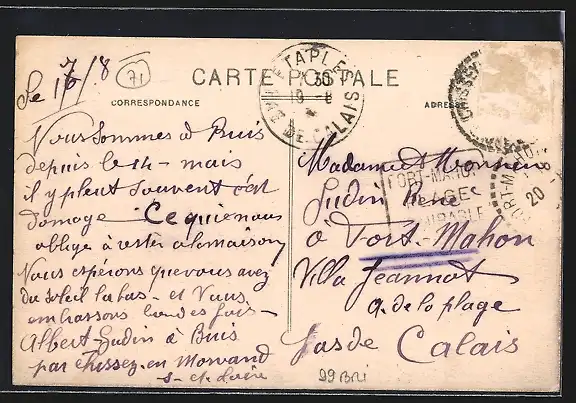 Le 17/8
71
CARTE POSTALE
CORRESPONDANCE
ADRESSE
ETAPLES
1 30
19 - 8
PAS DE CALAIS
Nous sommes à Buis
depuis le 14 - mais
il y pleut souvent c'est
domage Ce qui e nous
oblige à rester a la maison
Nous espérons que vous avez
du soleil labas - et Vous
embrassons bordes fois -
Albert Gudin à Buis
par Chissey en Morvand
S - et Loire
Madame et Monsieur
Gudin René
à Fort-Mahon
Villa Jeannot
a. de la plage
Pas de Calais
FORT-MAHON
PLAGE
ADMIRABLE
FORT-MAHON
20 - 8
CHISSEY
99 BRI